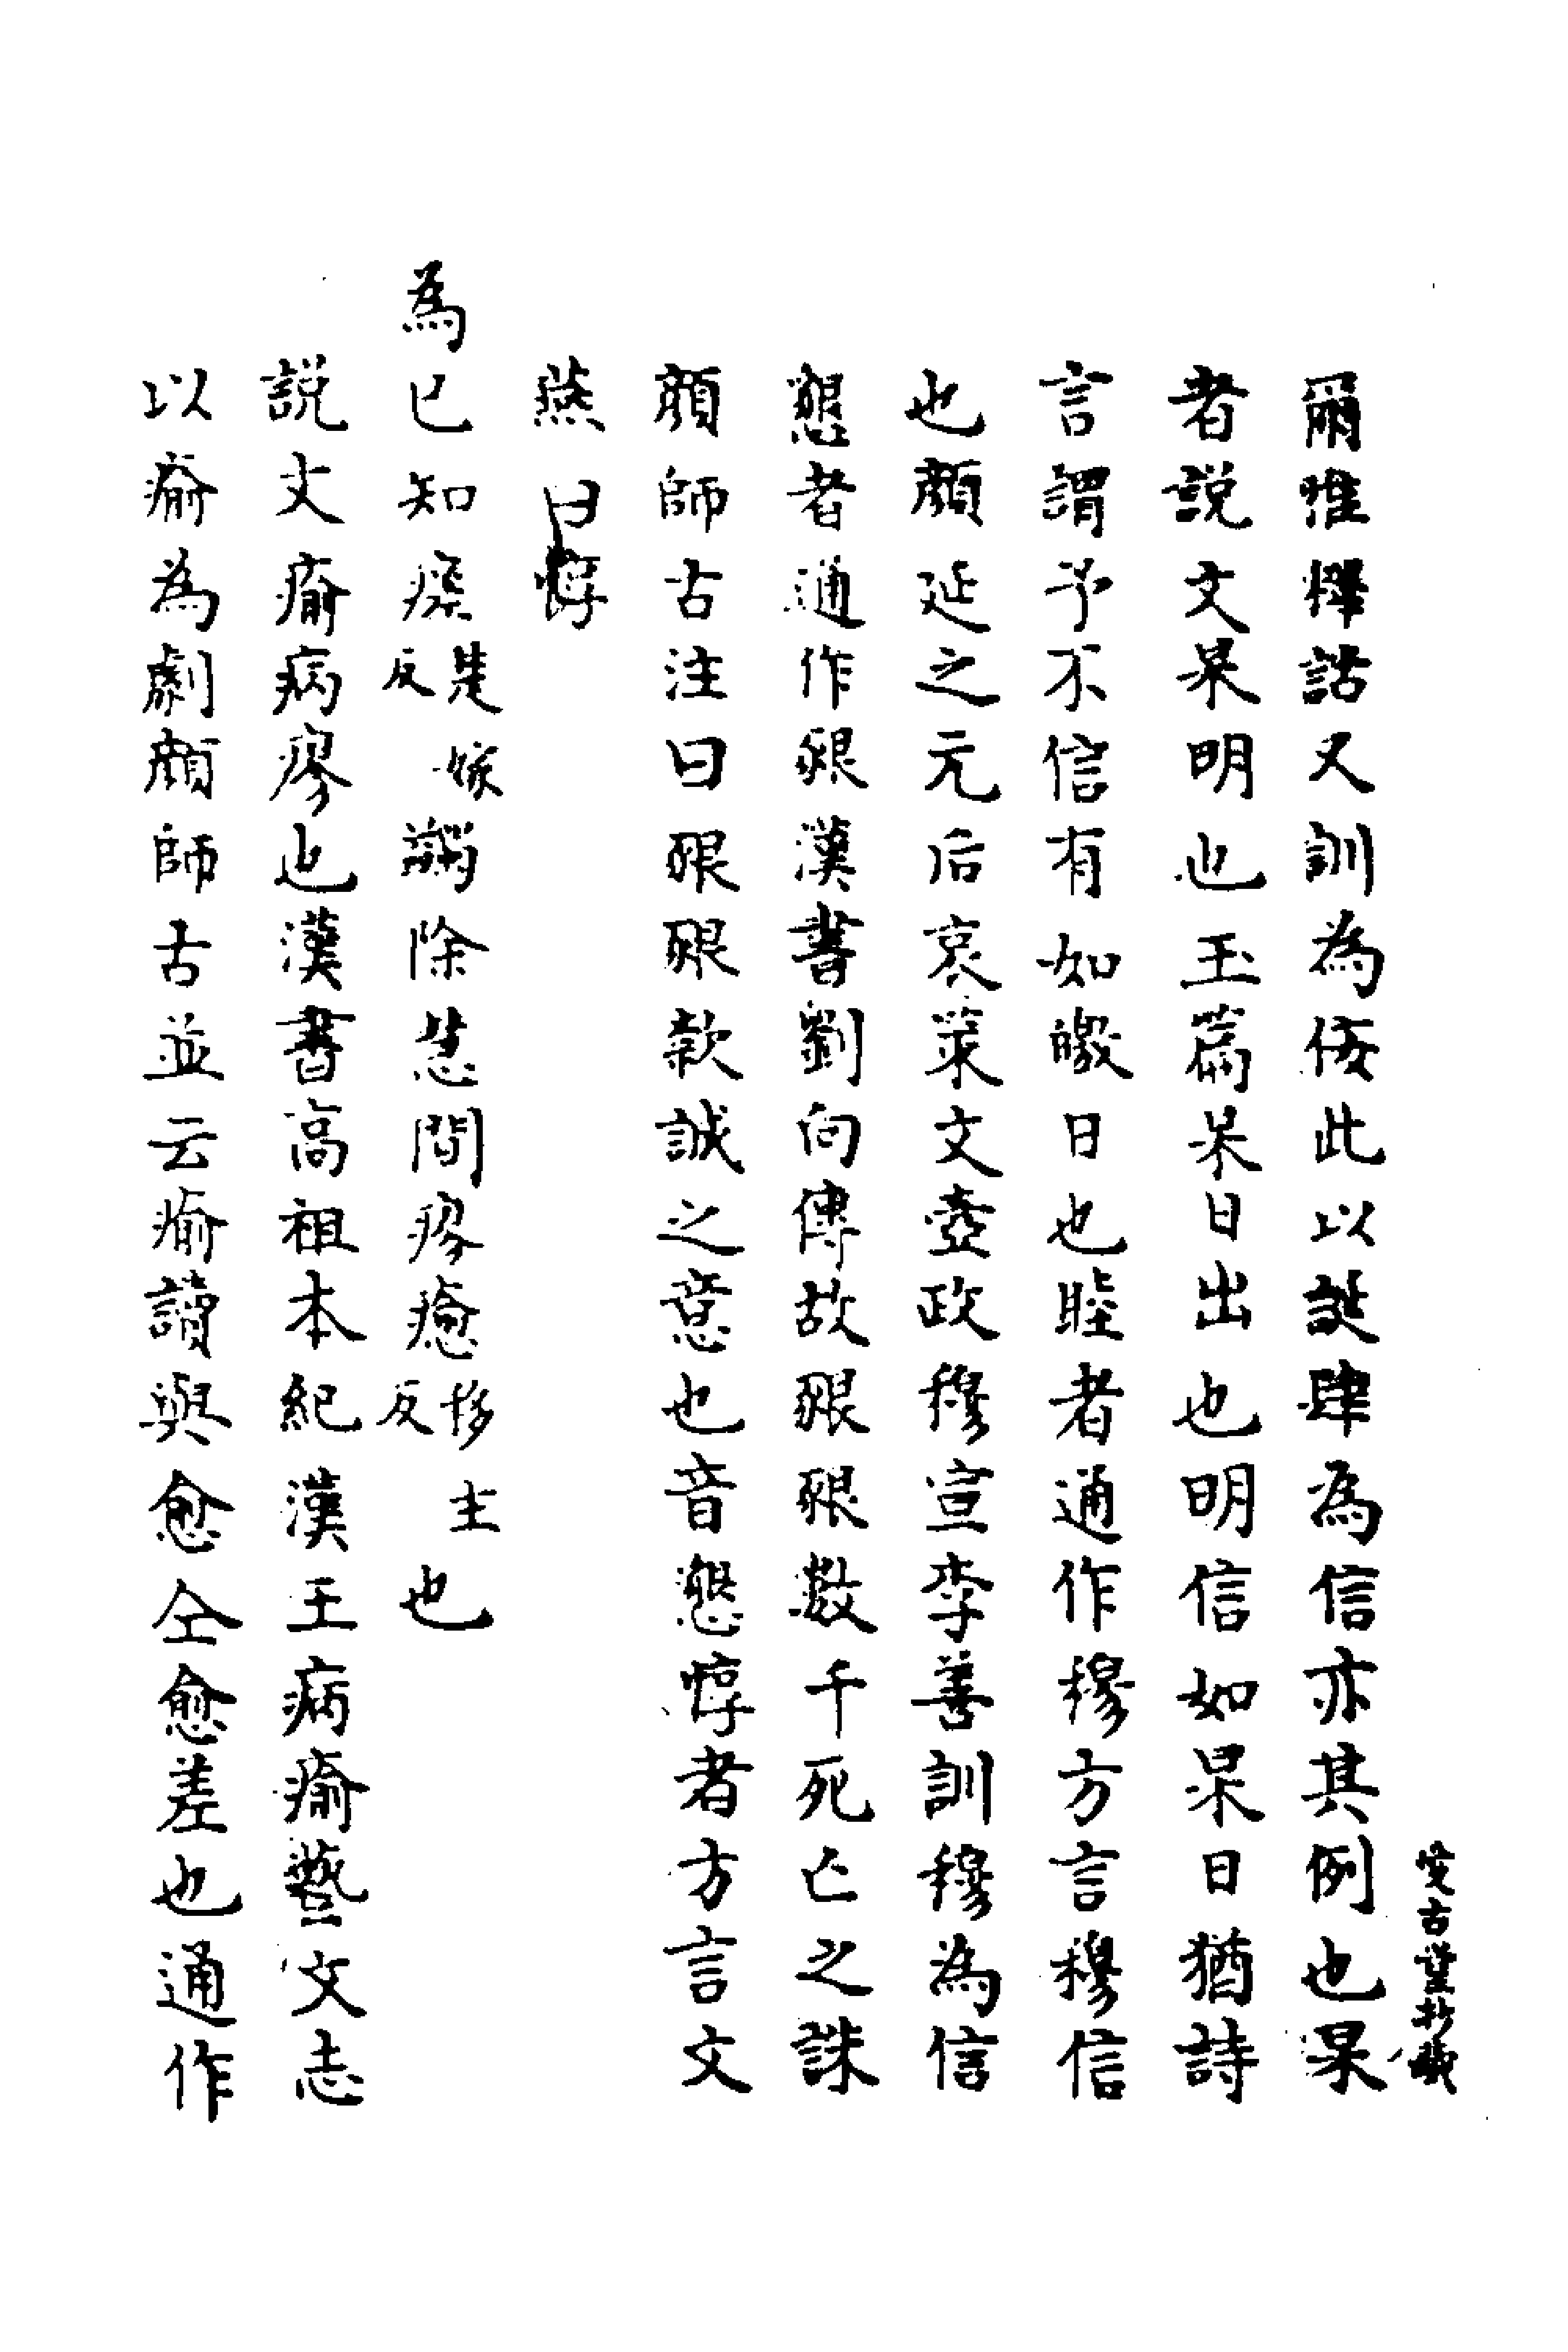 愛古謹抄藏
爾惟釋詁又訓為侅此以誕肆為信亦其例也杲
者説文杲明也玉篇杲日出也明信如杲日猶詩
言謂予不信有如皦日也睦者通作穆方言穆信
也顏延之元后哀策文壼政穆宣李善訓穆為信
懇者通作豤漢書劉向傳故豤豤數千死亡之誅
顏師古注曰豤豤欵誠之意也音懇惇者方言文
燕曰惇
為已知瘥楚嫁反蠲除慧間瘳癒移主反也
説文瘉病瘳也漢書高祖本紀漢王病瘉藝文志
以瘉為劇顏師古並云瘉讀與愈仝愈差也通作